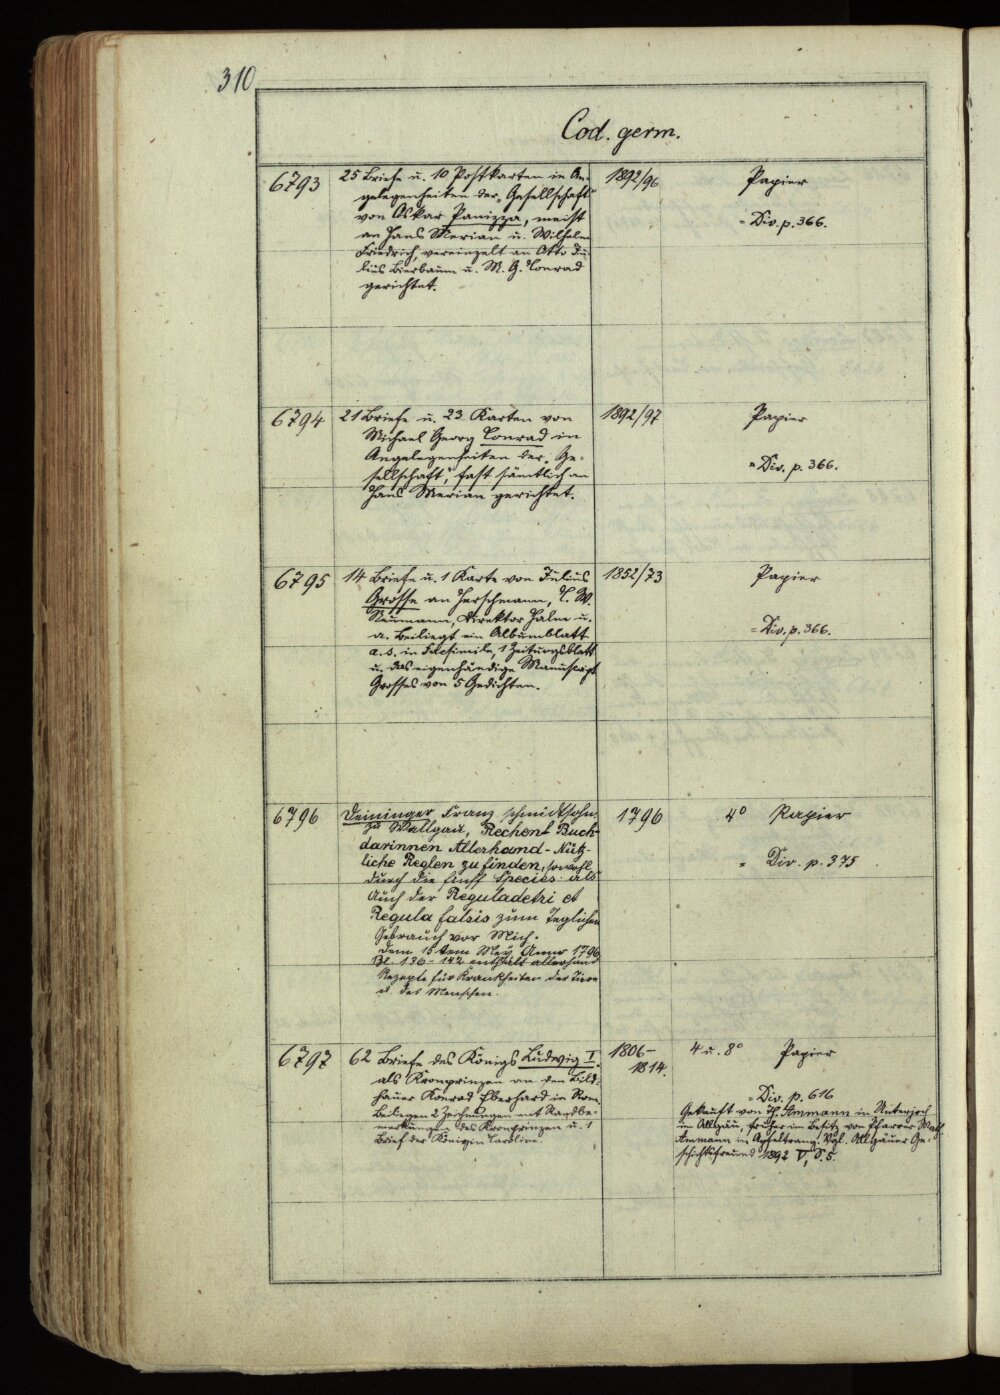 310
Cod. germ.
6793
25 Briefe u. 10 Postkarten in An-
gelegenheiten der „Gesellschaft"
von Oskar Panizza, meist
an Hans Merian u. Wilhelm
Friedrich, vereinzelt an Otto Ju-
lius Bierbaum u. M. G. Conrad
gerichtet.
1892/96
Papier
= Div. p. 366.
6794
21 Briefe u. 23 Karten von
Michael Georg Conrad in
Angelegenheiten der „Ge-
sellschaft", fast sämtlich an
Hans Merian gerichtet.
1892/97
Papier
= Div. p. 366.
6795
14 Briefe u. 1 Karte von Julius
Grosse an Herschmann,
Neumann, Direktor Halm u.
a. Beiliegt ein Albumblatt
a. s. in Facsimile, 1 Zeitungsblatt
u. das eigenhändige Manuscript
Grosses von 5 Gedichten.
1852/73
Papier
= Div. p. 366.
6796
Deininger Franz, schmidtsohn
zu Wallgau, Rechent Buch
darinnen Allerhand-Nütz-
liche Reglen zu finden, sowohl
durch die fünff Species als
Auch der Reguladetri et
Regula falsis zum Teglichen
Gebrauch vor Mich.
dem 15 tem Mey Anno 1796
Bl. 136-142 enthält allerhand
Rezepte für Krankheiten der Tiere
u. des Menschen.
1796
4° Papier
= Div. p. 375
6797
62 Briefe des Königs Ludwig I.
als Kronprinzen an den Bild-
hauer Konrad Eberhard in Rom.
Beiliegen 2 Zeichnungen mit Randbe-
merkungen des Kronprinzen u. 1
Brief der Königin Caroline.
1806-
1814.
4 u. 8° Papier
= Div. p. 616
Gekauft von Th. Ammann in Unterjoch
im Allgäu, früher im Besitz von Pfarrer
Ammann in Apfeltrang. Vgl. Allgäuer Ge-
schichtsfreund 1892 V, S. 5.